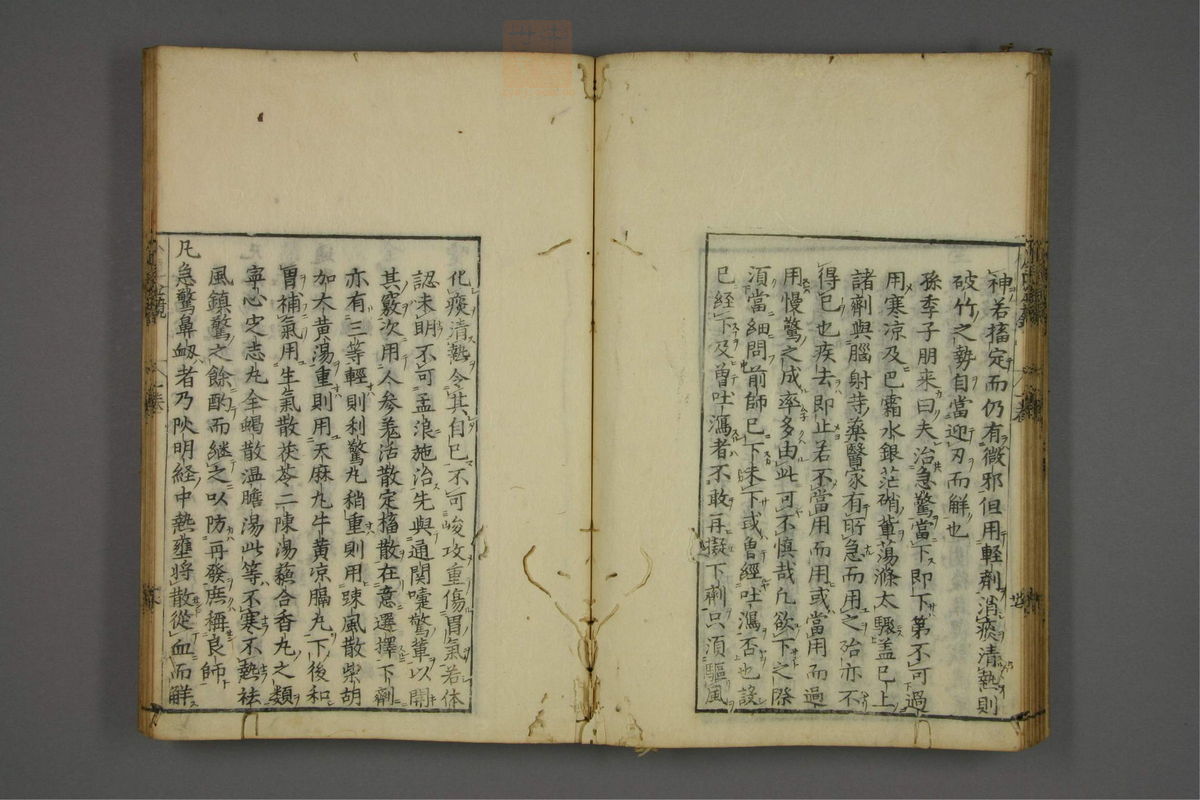 神若搐定而仍有微邪但用輕劑消痰清熱則
破竹之勢自當迎刃而觧也
孫季子朋来曰夫治急驚當下即下第不可過
用寒凉及巴霜水銀茫硝葶藶滌太驟盖已上
諸劑與腦射等藥醫家有所急而用之殆亦不
得已也疾去即止若不當用而用或當用而過
用慢驚之成率多由此可不慎哉凢欲下之際
須當細問前師已下未下或曽經吐瀉否也設
已經下及曽吐瀉者不敢再擬下劑只須驅風
化痰清熱令其自已不可峻攻重傷胃氣若体
認未明不可孟浪施治先與通関嚏驚葷以開
其竅次用人参羗活散定搐散在意選擇下劑
亦有三等輕則利驚丸稍重則用踈風散柴胡
加大黄湯重則用天麻丸牛黄凉膈丸下後和
胃補氣用生氣散茯苓二陳湯蘓合香丸之類
寧心定志丸全蝎散温膽湯此等不寒不熱祛
風鎮驚之餘酌而継之以防再發庶稱良師
凢急驚鼻衂者乃陽明経中熱壅將散從血而觧